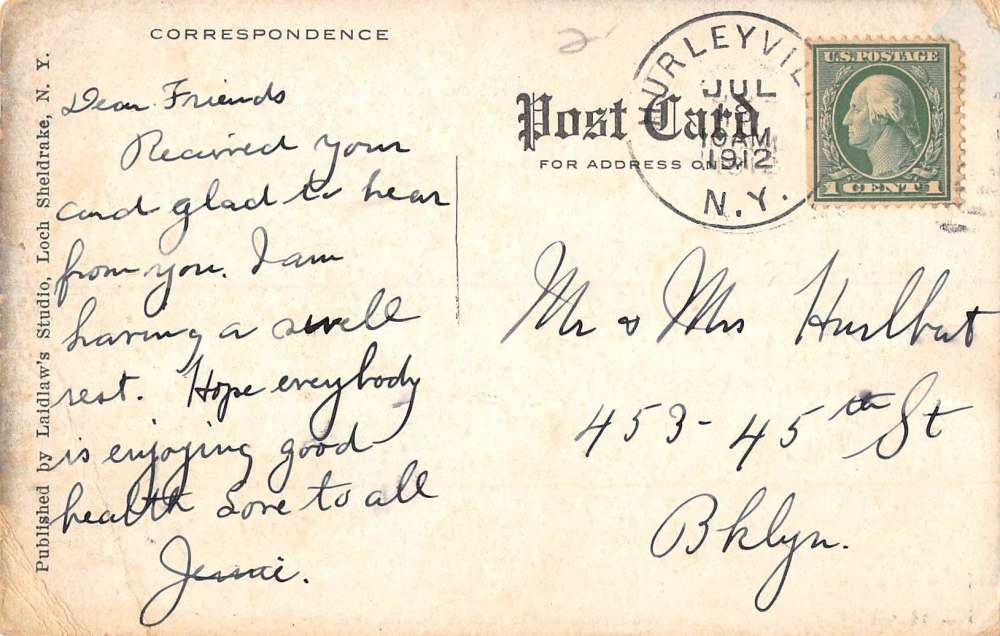 CORRESPONDENCE
Dear Friends
Received your
card glad to hear
from you. I am
having a swell
rest. Hope everybody
is enjoying good
health Love to all
Jennie.
Published by Laidlaw's Studio, Loch Sheldrake, N. Y.
Post Card
FOR ADDRESS ONLY
HURLEYVILLE
JUL
10AM
1912
N.Y.
U.S. POSTAGE
1 CENT 1
Mr & Mrs Hurlbut
453 - 45th St
Bklyn.